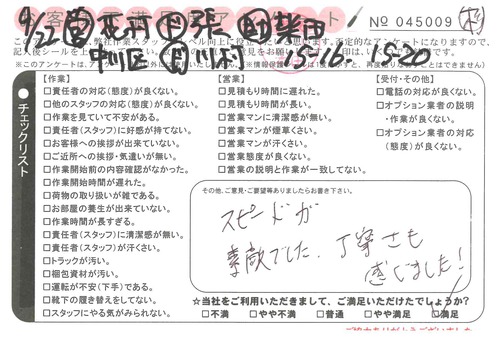 № 045009
15-16. 15:20
【作業】
□責任者の対応(態度)が良くない。
□他のスタッフの対応(態度)が良くない。
□作業を見ていて不安がある。
□責任者(スタッフ)に好感が持てない。
□お客様への挨拶が出来ていない。
□ご近所への挨拶・気遣いが無い。
□作業開始前の内容確認がなかった。
□作業開始時間が遅れた。
□荷物の取り扱いが雑である。
□お部屋の養生が出来ていない。
□作業時間が長すぎる。
□責任者(スタッフ)に清潔感が無い。
□責任者(スタッフ)が汗くさい。
□トラックが汚い。
□梱包資材が汚い。
□運転が不安(下手)である。
□靴下の履き替えをしてない。
□スタッフにやる気がみられない。
【営業】
□見積もり時間に遅れた。
□見積もり時間が長い。
□営業マンに清潔感が無い。
□営業マンが煙草くさい。
□営業マンが汗くさい。
□営業態度が良くない。
□営業の説明と作業が一致してない。
【受付・その他】
□電話の対応が良くない。
□オプション業者の説明
・作業が良くない。
□オプション業者の対応
(態度)が良くない。
チェックリスト
その他、ご意見・ご要望等ありましたらお書き下さい。
スピードが
素敵でした。丁寧さも
感じました!
☆当社をご利用いただきまして、ご満足いただけたでしょうか?
□不満 □やや不満 □普通 □やや満足 □満足
ご協力ありがとうございました